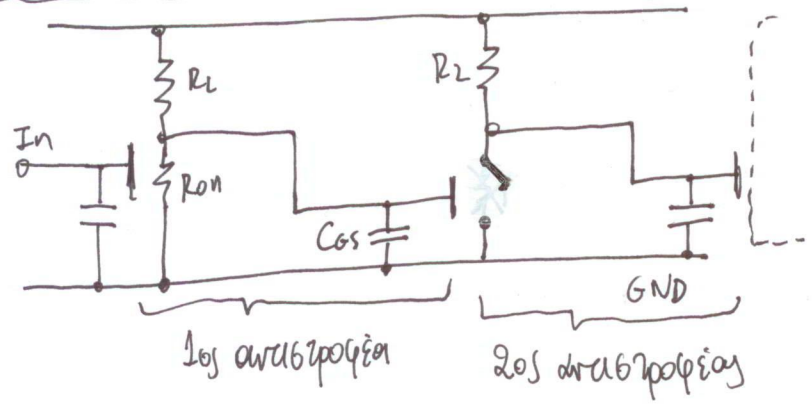 RL
R2
In
Ron
CGS
GND
1ος αναστροφέα
2ος αναστροφέας